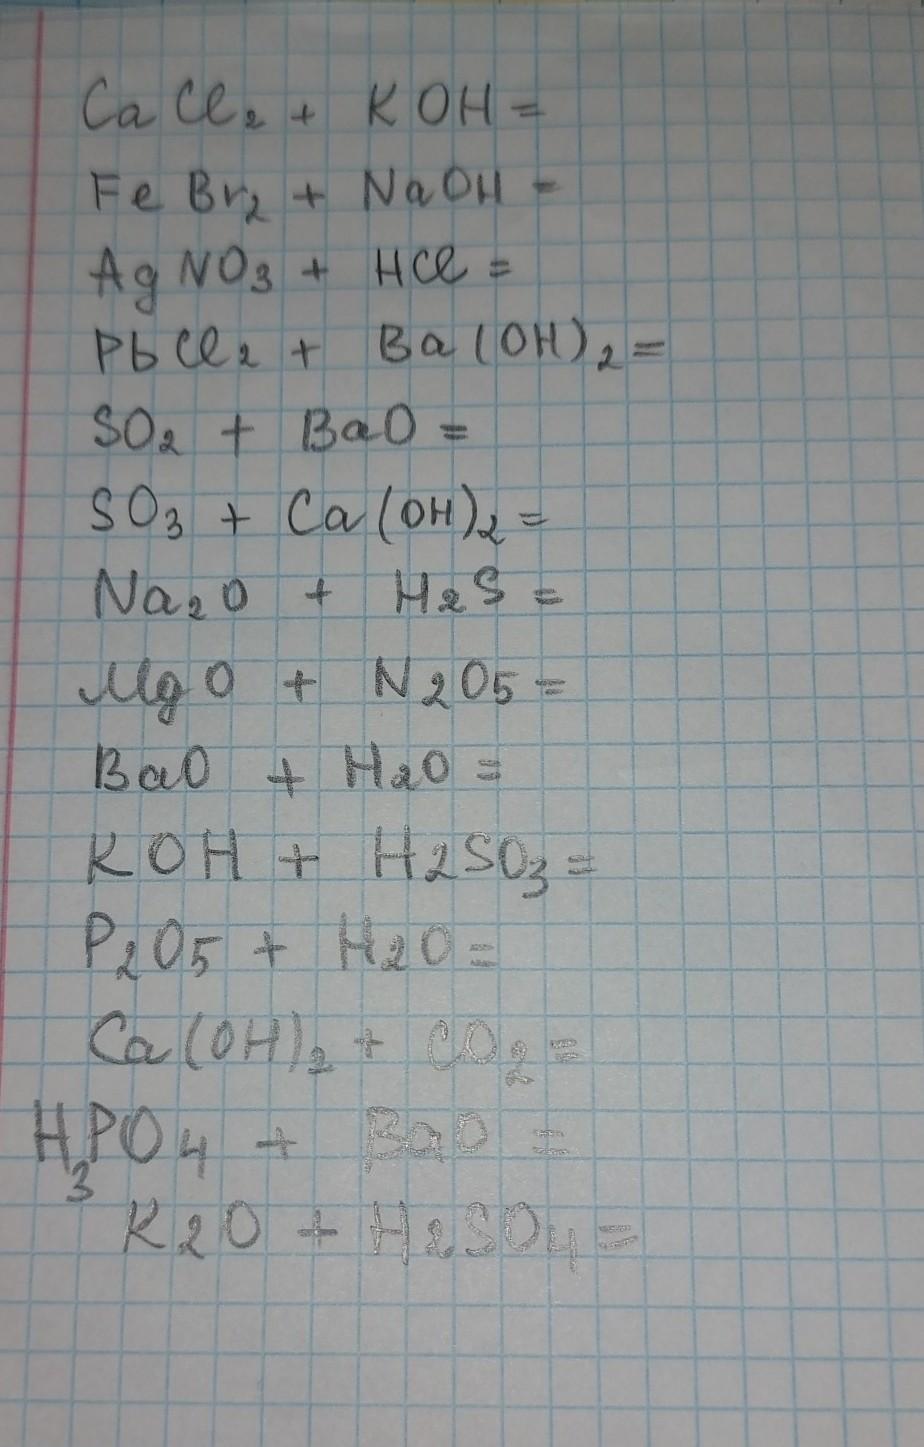 CaCl₂ + KOH =
FeBr₂ + NaOH =
AgNO₃ + HCl =
PbCl₂ + Ba(OH)₂ =
SO₂ + BaO =
SO₃ + Ca(OH)₂ =
Na₂O + H₂S =
MgO + N₂O₅ =
BaO + H₂O =
KOH + H₂SO₃ =
P₂O₅ + H₂O =
Ca(OH)₂ + CO₂ =
H₃PO₄ + BaO =
K₂O + H₂SO₄ =